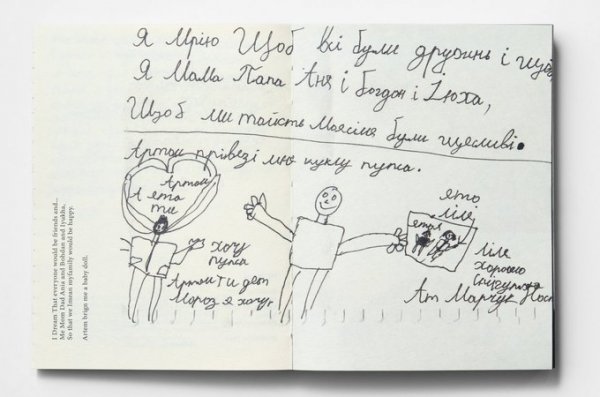 Я Мрію Щоб Всі були дружнь і
Я Мама Папа Аня і Богдан і Іюха,
Щоб ми Маясімя були щесливі.
Артом прівезі мню куклу пупса.
Артом
А ета
ти
хочу
пупса
Артом ти дет
Мороз я хочу
ето
Ліле
Ліле
хорошо
Ат Марчук
I Dream That everyone would be friends and...
Me Mom Dad Ania and Bohdan and Iyukha,
So that we Imean myfamily would be happy.
Artem brigs me a baby doll.